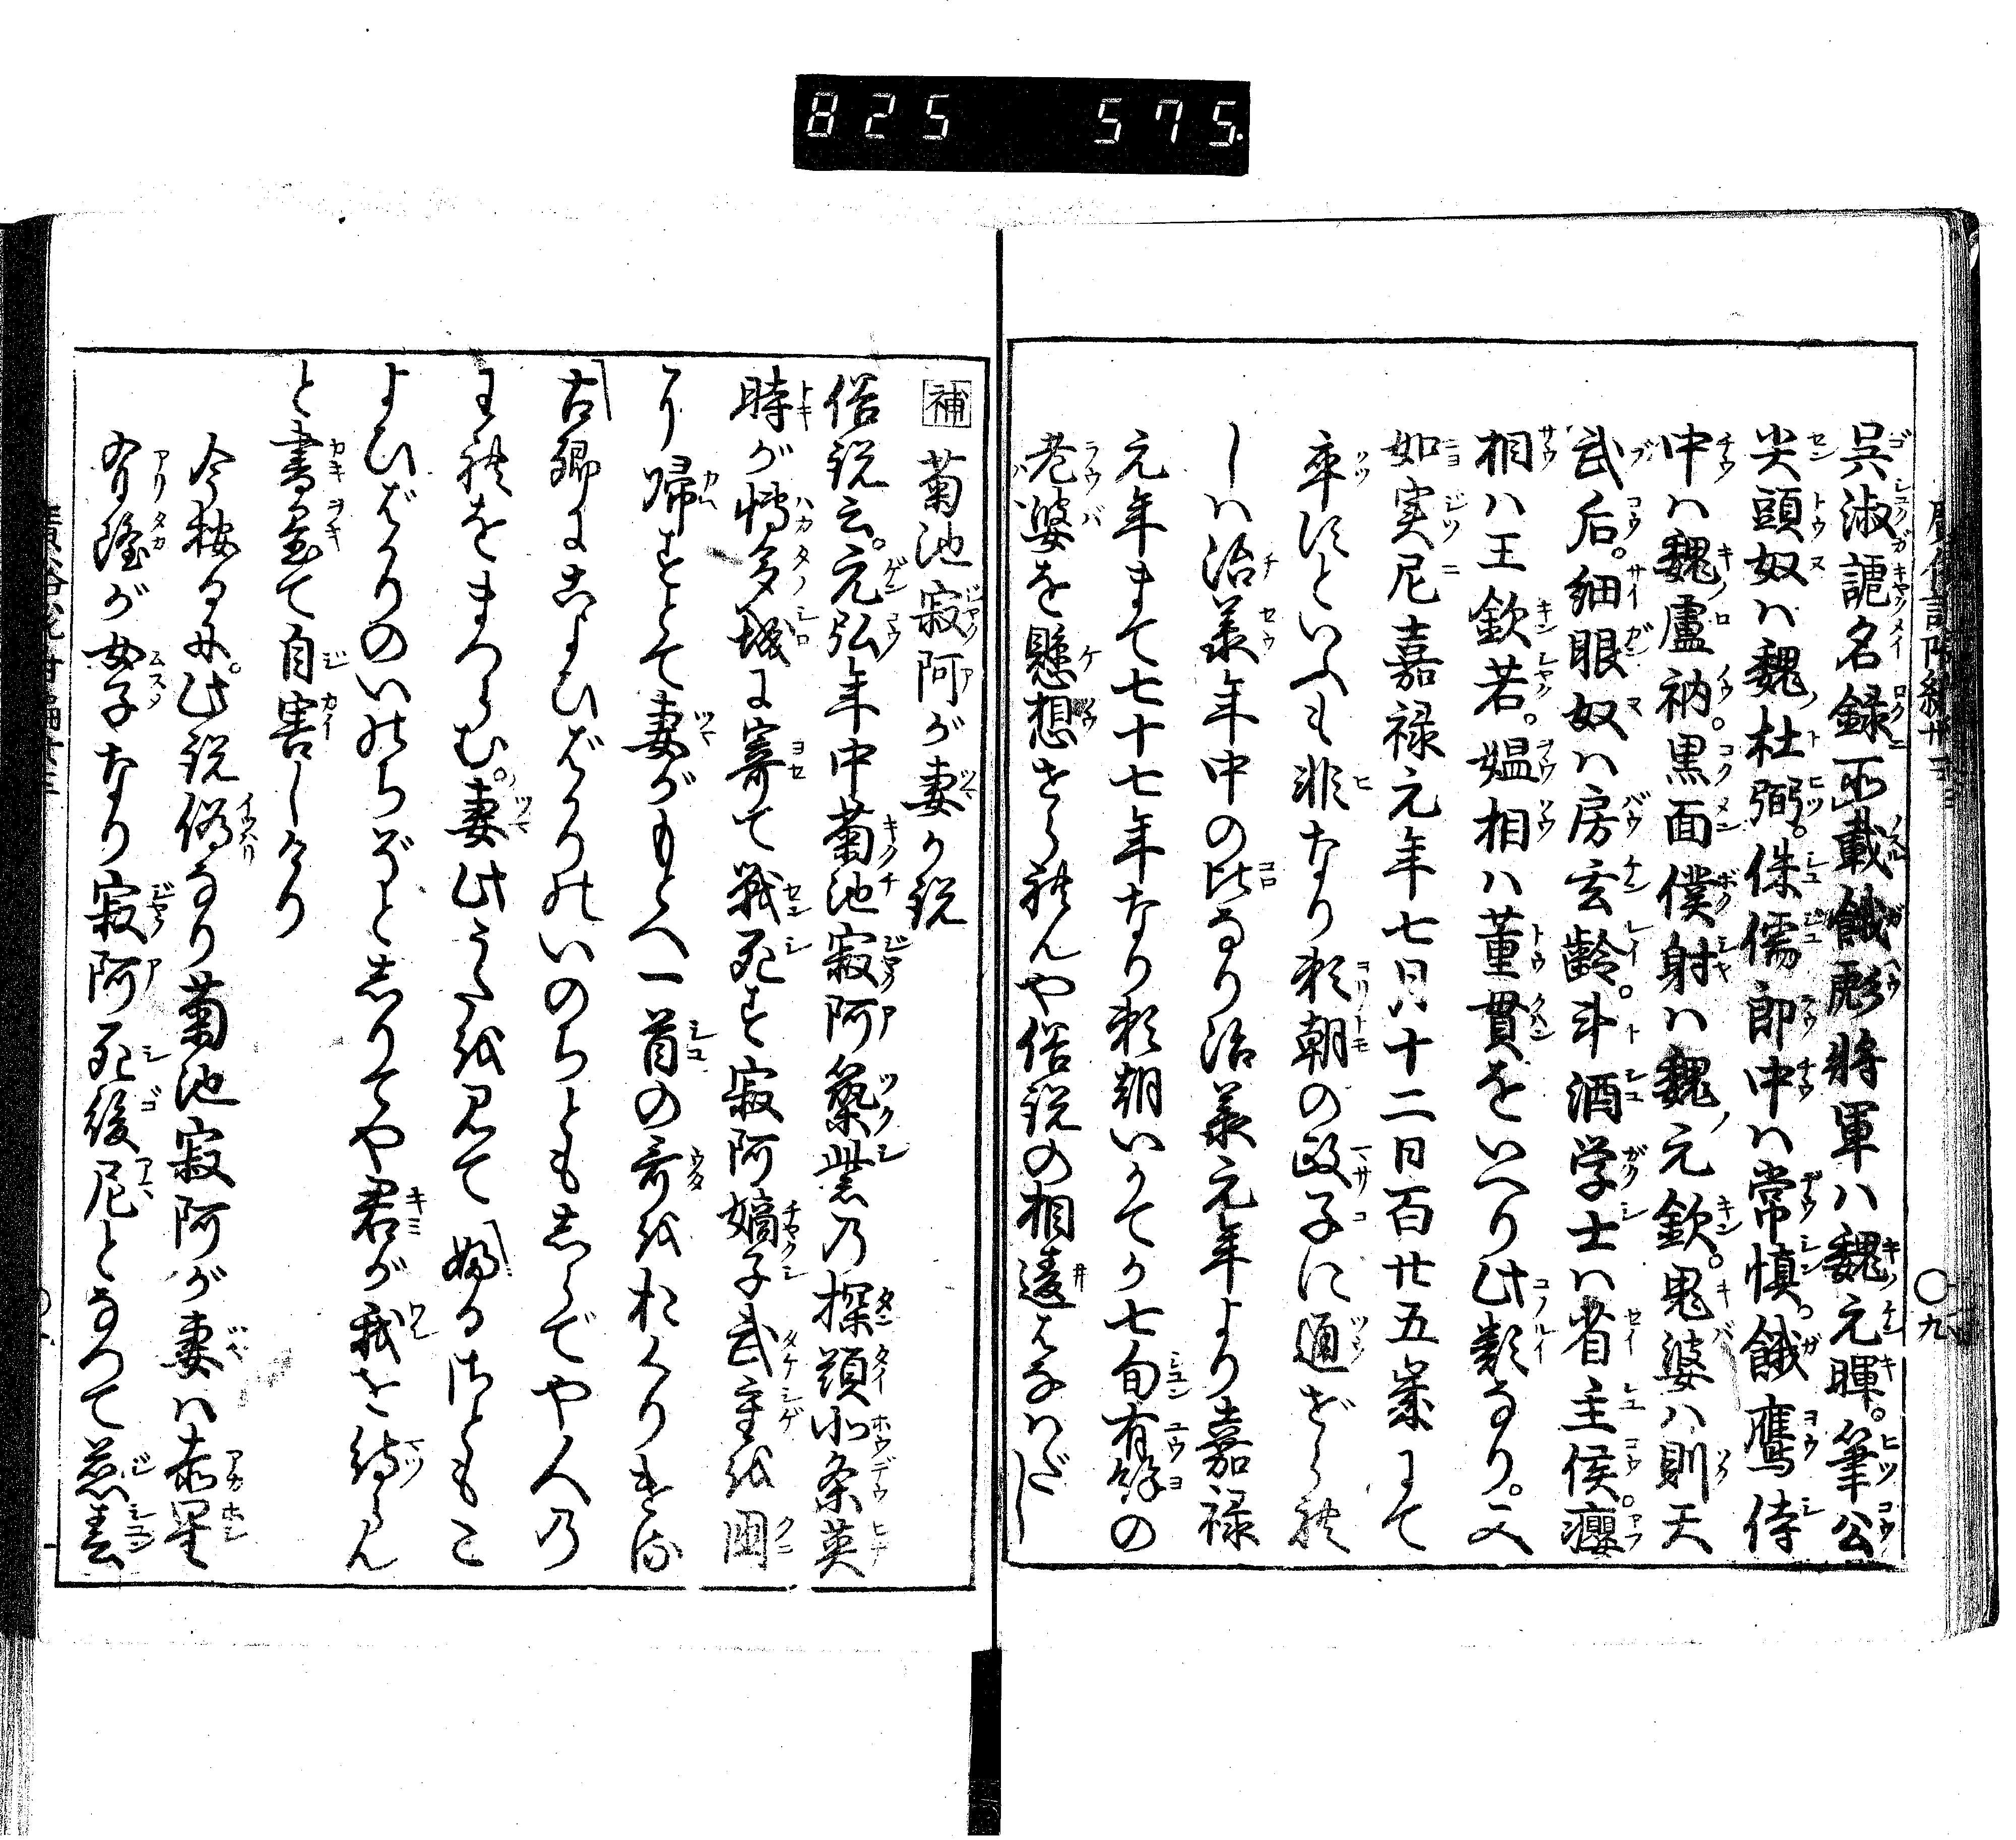 825 575.
呉淑謔名録所載餓彪将軍ハ魏元暉。筆公
尖頭奴ハ魏杜弼。侏儒郎中ハ常慎。餓鷹侍
中ハ魏盧衲。黒面僕射ハ魏元欽。鬼婆ハ則天
武后。細眼奴ハ房玄齢。斗酒学士ハ省主侯。癭
相ハ王欽若。媼相ハ董貫をいへり此類なり。又
如実尼嘉禄元年七月十二日百廿五歳にて
卒すといふも非なり頼朝の政子に通ぜられ
しハ治承年中の比なり治承元年より嘉禄
元年まて七十七年なり頼朝いかてか七旬有餘の
老婆を懸想せられんや俗説の相違はなハだし
補 菊池寂阿が妻の説
俗説云。元弘年中菊池寂阿築紫乃探題北条英
時が博多城に寄て戦死す寂阿嫡子武重を国
に帰すとて妻がもとへ一首の哥をおくりける
古郷にこよひばかりのいのちとも志らでや人乃
われをまつらむ。妻此うたを見て
よひばかりのいのちぞと志りてや君が我を待らん
と書置て自害しけり
今按るに。此説偽なり菊池寂阿が妻ハ赤星
有隆が女子なり寂阿死後尼となつて慈春